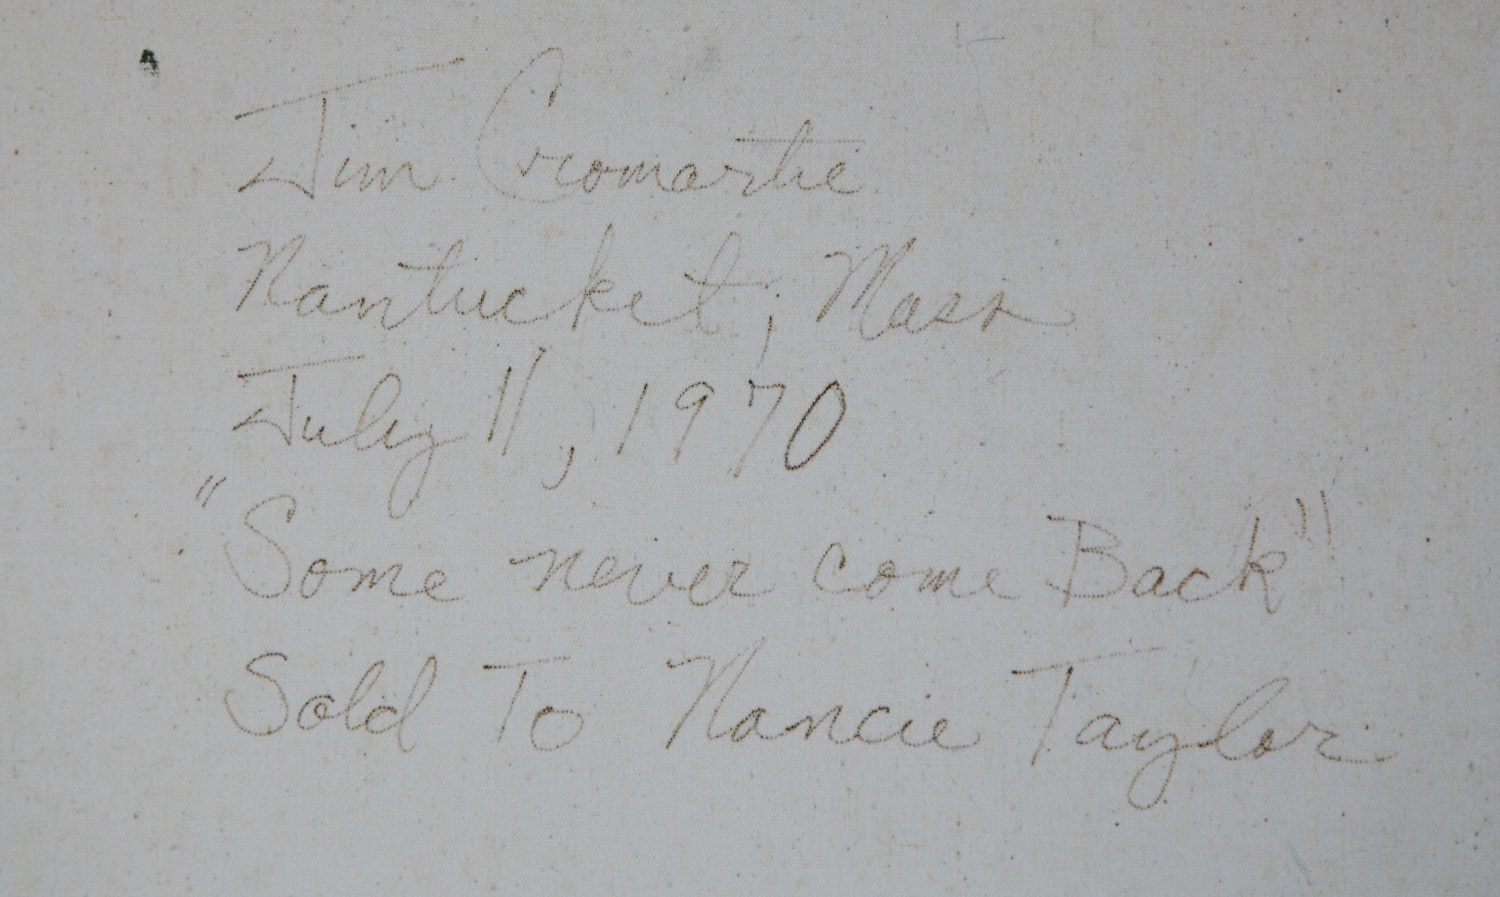 Jim Cromartie
Nantucket, Mass
July 11, 1970
"Some never come Back"
Sold To Nancie Taylor